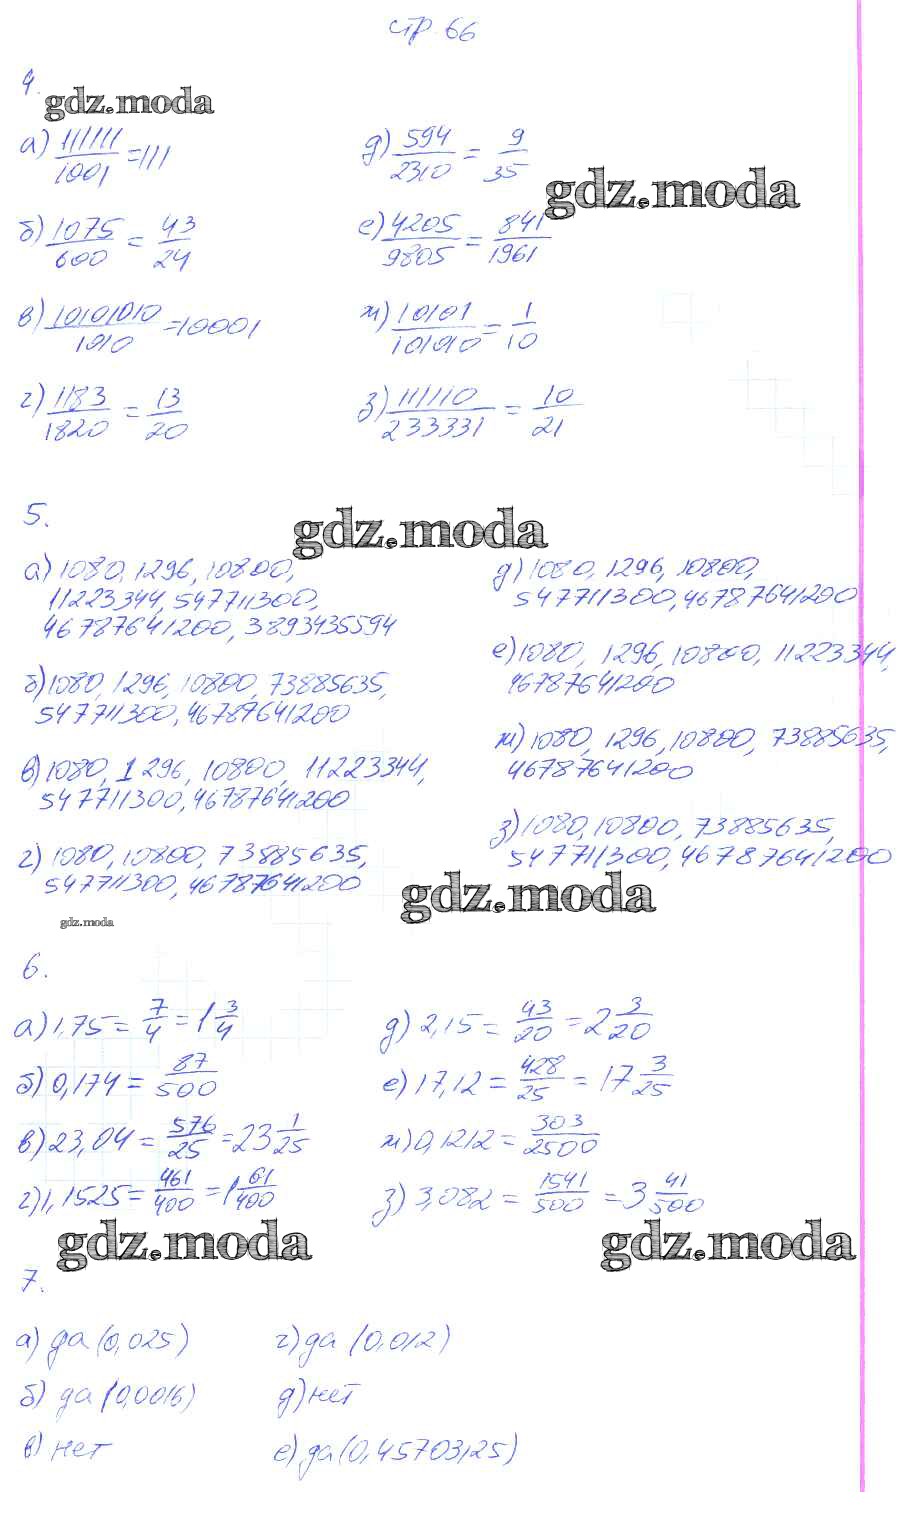 стр. 66
4.
gdz.moda
а) 111111/1001 = 111
д) 594/2310 = 9/35
gdz.moda
б) 1075/600 = 43/24
е) 4205/9805 = 841/1961
в) 10101010/1010 = 10001
ж) 10101/101010 = 1/10
г) 1183/1820 = 13/20
з) 111110/233331 = 10/21
5.
gdz.moda
а) 1080, 1296, 10800,
11223344, 547711300,
46787641200, 3893435594
б) 1080, 1296, 10800, 73885635,
547711300, 46787641200
в) 1080, 1296, 10800, 11223344,
547711300, 46787641200
г) 1080, 10800, 73885635,
547711300, 46787641200
д) 1080, 1296, 10800,
547711300, 46787641200
е) 1080, 1296, 10800, 11223344,
46787641200
ж) 1080, 1296, 10800, 73885635,
46787641200
з) 1080, 10800, 73885635,
547711300, 46787641200
gdz.moda
gdz.moda
6.
а) 1,75 = 7/4 = 1 3/4
д) 2,15 = 43/20 = 2 3/20
б) 0,174 = 87/500
е) 17,12 = 428/25 = 17 3/25
в) 23,04 = 576/25 = 23 1/25
ж) 0,1212 = 303/2500
г) 1,1525 = 461/400 = 1 61/400
з) 3,082 = 1541/500 = 3 41/500
gdz.moda
gdz.moda
7.
а) да (0,025)
г) да (0,012)
б) да (0,0016)
д) нет
в) нет
е) да (0,45703125)